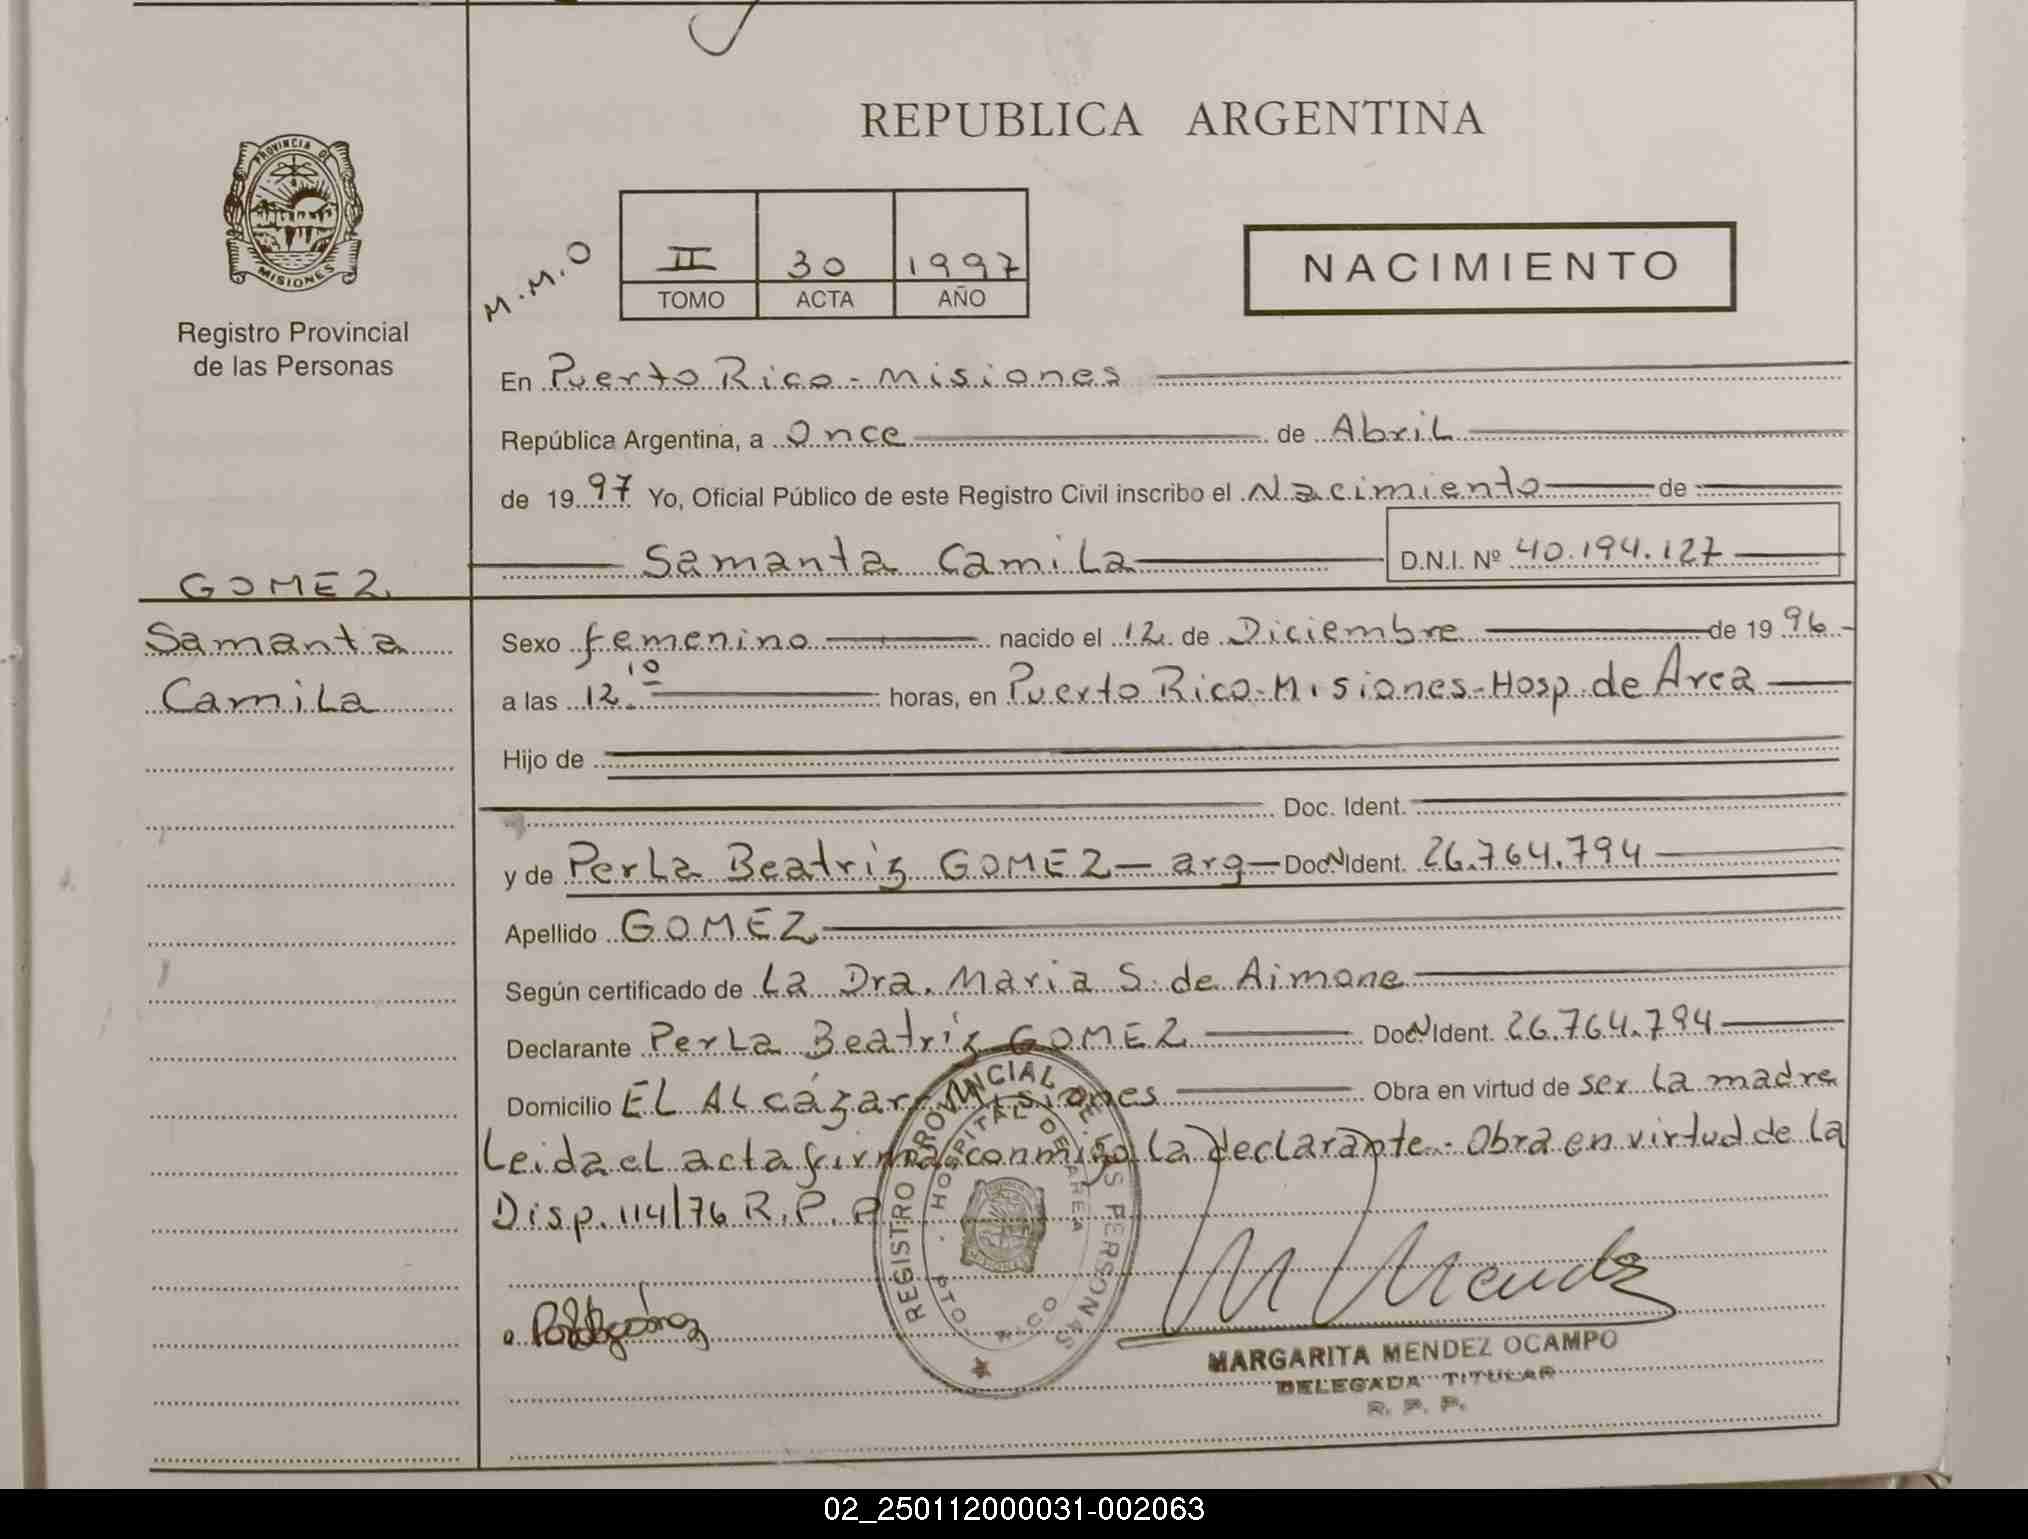 REPUBLICA ARGENTINA
PROVINCIA DE
MISIONES
Registro Provincial
de las Personas
M.M.O
II 30 1997
TOMO ACTA AÑO
NACIMIENTO
En Puerto Rico - Misiones
República Argentina, a Once de Abril
de 1997 Yo, Oficial Público de este Registro Civil inscribo el Nacimiento de
Samanta Camila D.N.I. Nº 40.194.127
GOMEZ
Samanta
Camila
Sexo femenino nacido el 12 de Diciembre de 1996
a las 12.10 horas, en Puerto Rico - Misiones - Hosp. de Area
Hijo de
Doc. Ident.
y de Perla Beatriz GOMEZ - arg - Doc. N Ident. 26.764.794
Apellido GOMEZ
Según certificado de La Dra. Maria S. de Aimone
Declarante Perla Beatriz GOMEZ Doc. N Ident. 26.764.794
Domicilio EL Alcázar - Misiones Obra en virtud de ser La madre
Leida el acta firma conmigo la declarante - Obra en virtud de la
Disp. 114/76 R.P.P
REGISTRO PROVINCIAL DE LAS PERSONAS
HOSPITAL DE AREA
PTO. RICO
M Mendez
MARGARITA MENDEZ OCAMPO
DELEGADA TITULAR
R. P. P.
02_250112000031-002063